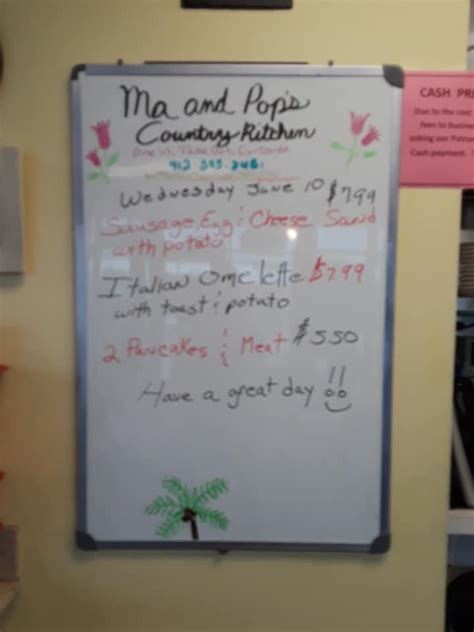 Ma and Pop's
Country Kitchen
Dine In, Take Out, Curbside
Wednesday June 10 $7.99
Sausage, Egg & Cheese Sand
with potato
Italian Omelette $7.99
with toast & potato
2 Pancakes & Meat $5.50
Have a great day !!
CASH PRI
Due to the cost
fees to busine
asking our Patro
Cash payment.